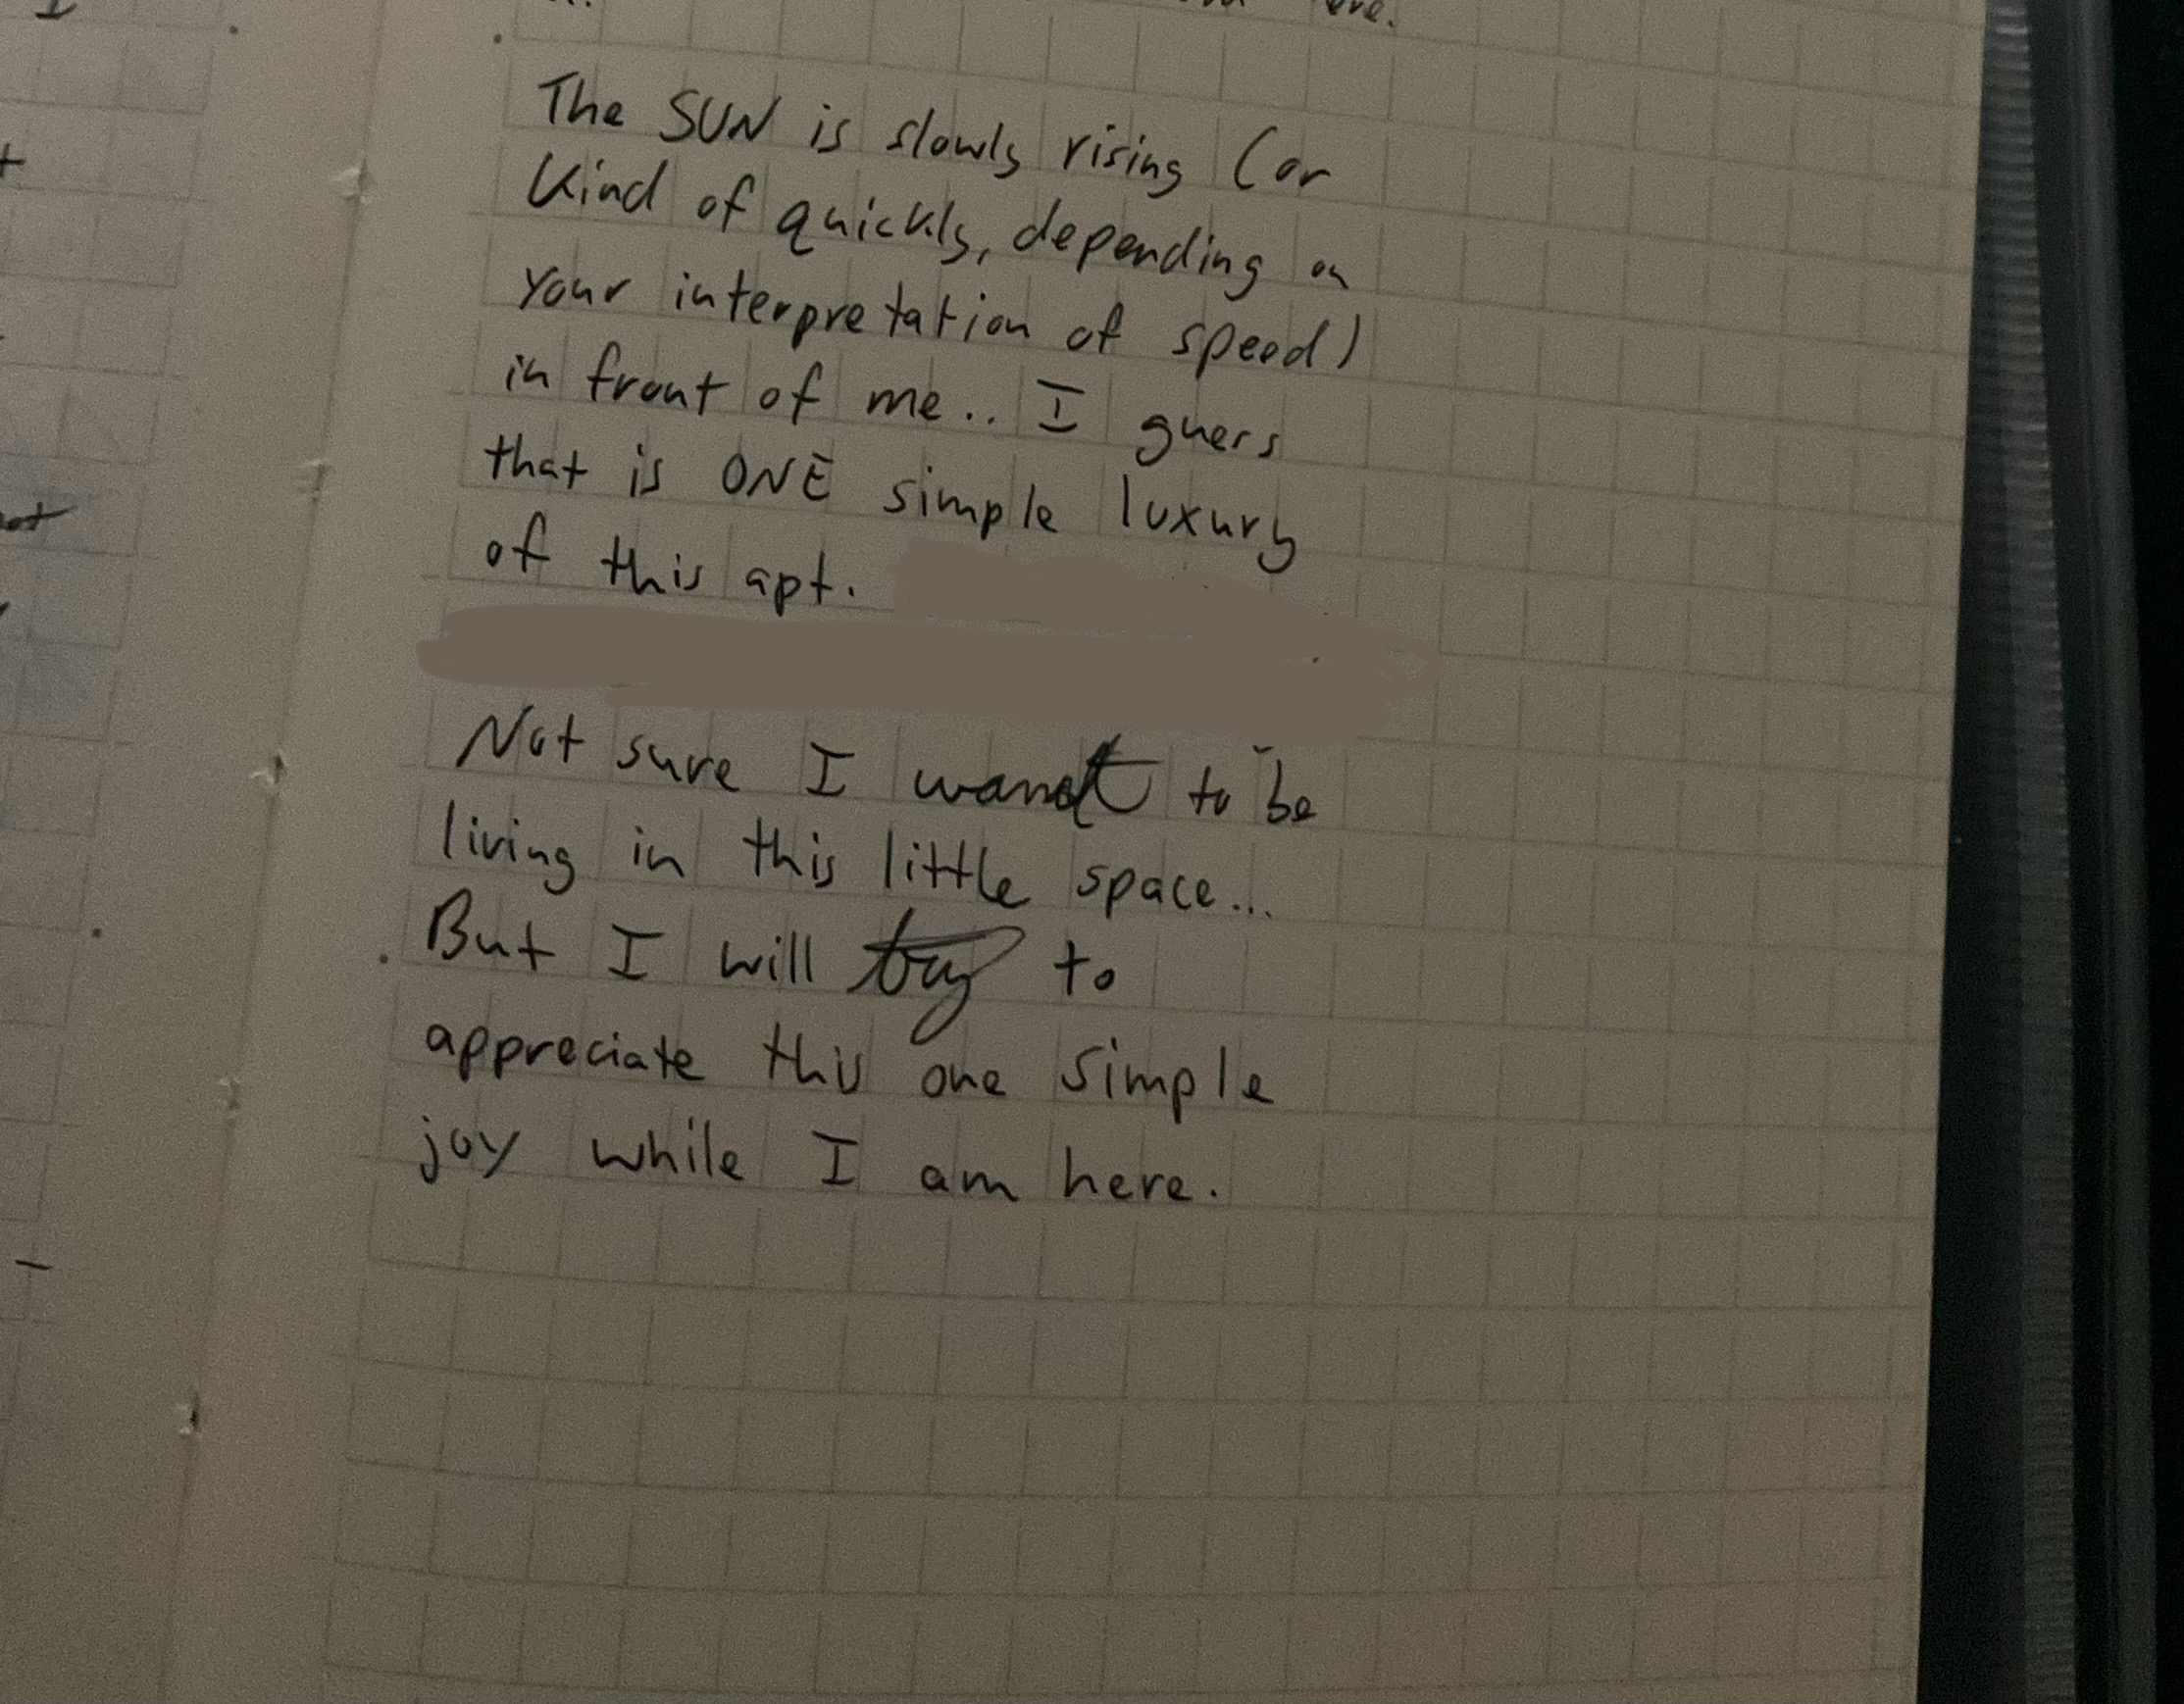 The SUN is slowly rising (or
kind of quickly, depending on
your interpretation of speed)
in front of me.. I guess
that is ONE simple luxury
of this apt.
Not sure I want to be
living in this little space...
But I will try to
appreciate this one simple
joy while I am here.